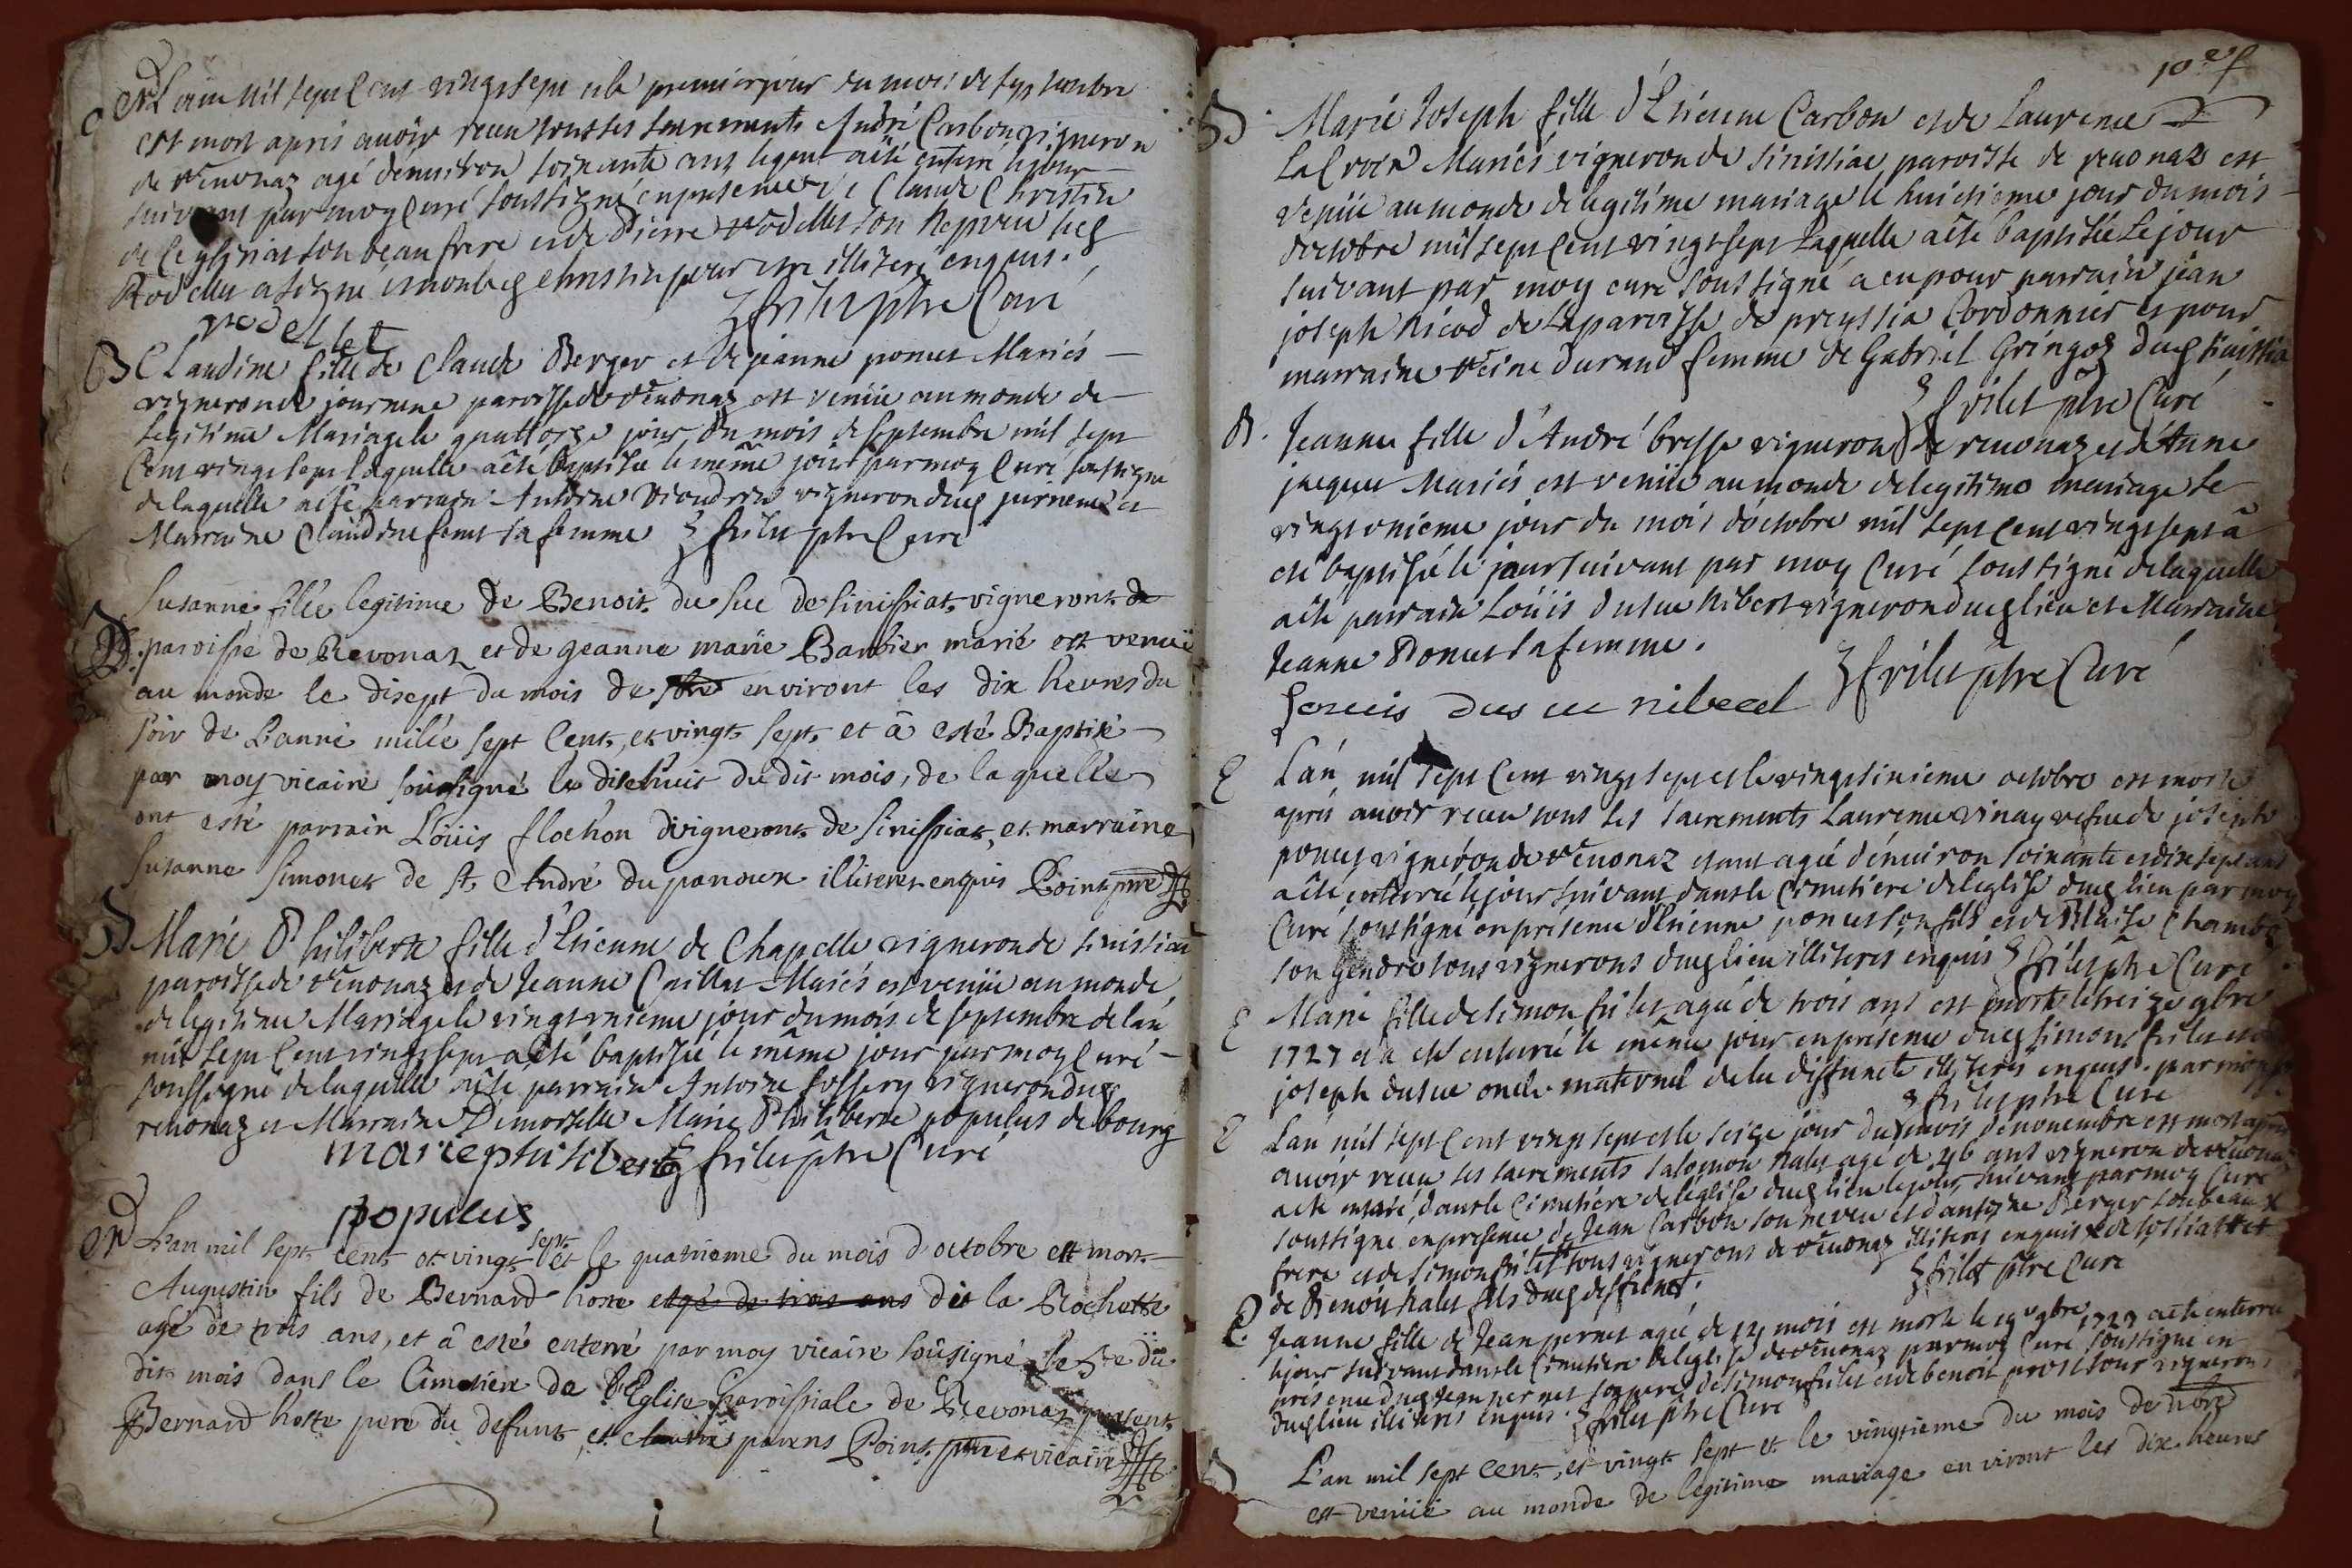 L'an mil sept cent vingt sept et le premier jour du mois de septembre
est mort apres avoir receu tous les sacrements André Carbon vigneron
de Revonaz agé d'environ soixante ans lequel a êté enterré le jour
suivant par moy Curé soussigné en presence de Claude Christin
de son beau frere et de Pierre Rodellet son nepveu led
Rodellet a signé et non led Christin pour être illiteré enquis.
rodellet frilet ptre Curé
B Claudine fille de Claude Berger et de jeanne poncet Mariés
vigneron de journene paroisse de Revonaz est venüe au monde de
legitime Mariage le quattorze jour du mois de septembre mil sept
Cent vingt sept laquelle a êté baptisée le même jour par moy Curé soussigné
de laquelle a êté parrain Antoine vigneron dud et
Marraine Claudine sa femme frilet ptre Curé
Susanne fillie legitime de Benoit du suc de sinissiat vigneront de
B. paroisse de Revonaz et de geanne marie Barbier marié est venuë
au monde le disept du mois de 7bre environt les dix heures du
soir de Lanné milie sept Cent, et vingt sept, et â esté Baptisé
par moy vicaire sousigné le disehuit du dit mois, de laquelle
ont esté parrain Loüis flochon divigneront de sinissiat, et marraine
Susanne Simonet de St André du panoux illiteres enquis Point ptre
B Marie Philiberte fille d'Etienne de Chapelle vigneron de sinissiat
paroisse de Revonaz et de Jeanne Caillat Mariés est venüe au monde
de legitime Mariage le vingt unieme jour du mois de septembre de l'an
mil sept Cent vingt sept a êté baptisée le même jour par moy Curé
soussigné de laquelle a êté parrain Antoine vigneron dud
revonaz et Marraine Demoiselle Marie Philiberte populus de bourg
marie philiberte frilet ptre Curé
populus
L'an mil sept cent et vingt sept et le quatrieme du mois d'octobre est mort
Augustin fils de Bernard hoste agé de trois ans de la Rochette
agé de trois ans, et â esté enterré par moy vicaire sousigné le 5e du
dit mois dans le Cimetiere de l'Eglise Paroissiale de Revonaz present
Bernard hoste pere du defunt et parens Point ptre et vicaire
10
B Marie Joseph fille d'Etienne Carbon et de Laurence
LaCroix Mariés vigneron de sinissiat paroisse de revonaz est
venüe au monde de legitime mariage le huictieme jour du mois
d'octobre mil sept Cent vingt sept laquelle a êté baptisée le jour
suivant par moy curé soussigné a eu pour parrain jean
joseph Nicod de la paroisse de preyssia Cordonnier et pour
marraine Reine Durand femme de Gabriel Gringoz dud sinissia
frilet ptre Curé
B. Jeanne fille d'André bresse vigneron de revonaz et d'Anne
jacquet Mariés est venüe au monde de legitime mariage le
vingt onieme jour du mois d'octobre mil sept cent vingt sept a
êté baptisée le jour suivant par moy Curé soussigné de laquelle
a êté parrain Loüis dusuc Nibert vigneron dud lieu et Marraine
Jeanne Poncet sa femme.
Louis frilet ptre Curé
E L'an mil sept Cent vingt sept et le vingt sixieme octobre est morte
apres avoir receu tous les sacrements Laurence vinay vefue de joseph
poncet vigneron de Revonaz etant agée d'environ soixante et dix sept ans
a êté enterrée le jour suivant dans le Cimetiere de l'eglise dud lieu par moy
Curé soussigné en présence d'Etienne poncet son fils et de Blaise
son gendre tous vignerons dud lieu illiteres enquis frilet ptre Curé
E Marie fille de simon frilet agée de trois ans est morte le treize 9bre
1727 et a êté enterrée le même jour en présence dud simon frilet et de
joseph dusuc oncle maternel de la deffuncte illiterés enquis. par moy
frilet ptre Curé
E L'an mil sept Cent vingt sept et le seize jour du mois de novembre est mort apres
avoir receu les sacrements salomon agé de 46 ans vigneron de revonaz
a êté enterré dans le Cimetiere de l'église dud lieu le jour suivant par moy Curé
soussigné en presence de Jean Carbon son neveu et d'antoine Berger son beau
frere et de simon frilet tous vignerons de Revonaz illiteres enquis et
de Benoit fils dud deffunct. frilet ptre Curé
E. Jeanne fille de Jean pernet agée de mois est morte le 9bre 1727 a êté enterrée
le jour suivant dans le Cimetiere de l'eglise de revonaz par moy Curé soussigné en
présence dud Jean pernet son pere, de simon frilet et de benoit prost tous vignerons
dud lieu illiteres enquis. frilet ptre Curé
L'an mil sept Cent, et vingt sept et le vingtieme du mois de
est venüe au monde de legitime mariage environt les dix heures